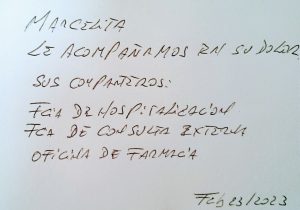 MARCELITA
LE ACOMPAÑAMOS EN SU DOLOR,
SUS COMPAÑEROS:
FCIA DE HOSPITALIZACION
FCIA DE CONSULTA EXTERNA
OFICINA DE FARMACIA
Feb 23/2023